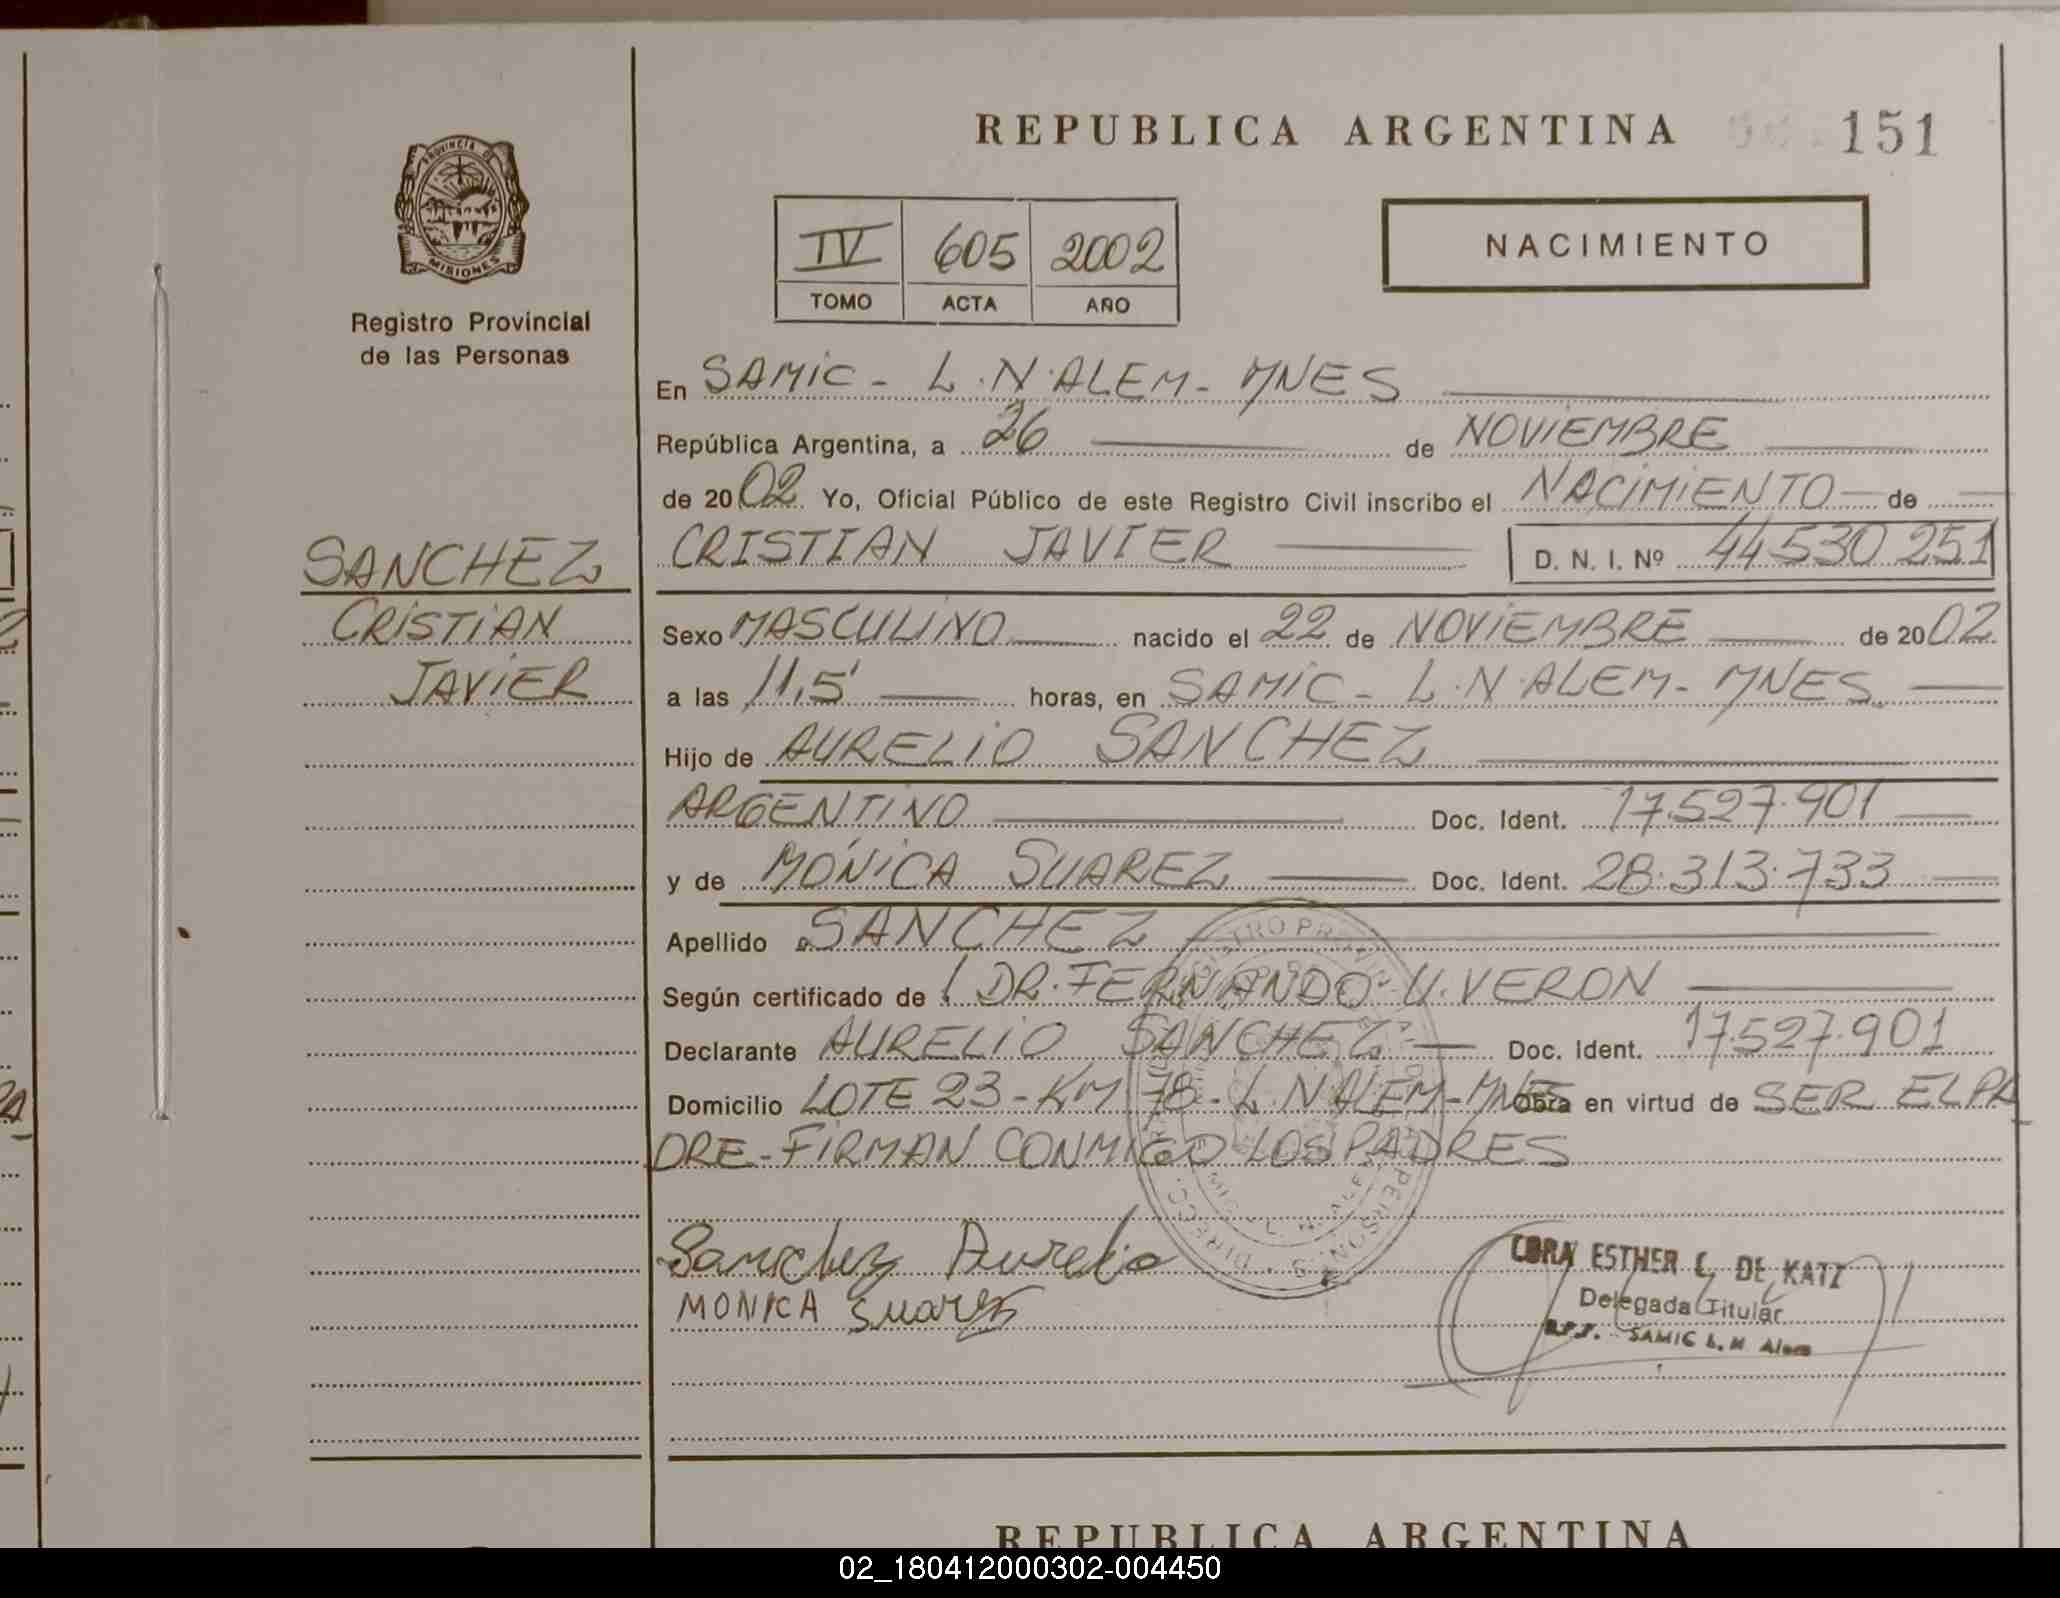 REPUBLICA ARGENTINA 151
PROVINCIA DE
MISIONES
Registro Provincial
de las Personas
IV 605 2002
TOMO ACTA AÑO
NACIMIENTO
En SAMIC - L.N.ALEM - MNES
República Argentina, a 26 de NOVIEMBRE
de 2002. Yo, Oficial Público de este Registro Civil inscribo el NACIMIENTO de
SANCHEZ
CRISTIAN
JAVIER
CRISTIAN JAVIER D. N. I. Nº 44.530.251
Sexo MASCULINO nacido el 22 de NOVIEMBRE de 2002.
a las 11,5' horas, en SAMIC - L.N.ALEM - MNES.
Hijo de AURELIO SANCHEZ
ARGENTINO Doc. Ident. 17.527.901
y de MÓNICA SUAREZ Doc. Ident. 28.313.733
Apellido SANCHEZ
Según certificado de DR. FERNANDO U. VERON
Declarante AURELIO SANCHEZ Doc. Ident. 17.527.901
Domicilio LOTE 23 - KM 78 - L.N.ALEM - MNES Obra en virtud de SER EL PA
DRE - FIRMAN CONMIGO LOS PADRES
Sanchez Aurelio
MONICA Suarez
ESTHER DE KATZ
Delegada Titular
SAMIC L. N Alem
REPUBLICA ARGENTINA
02_180412000302-004450